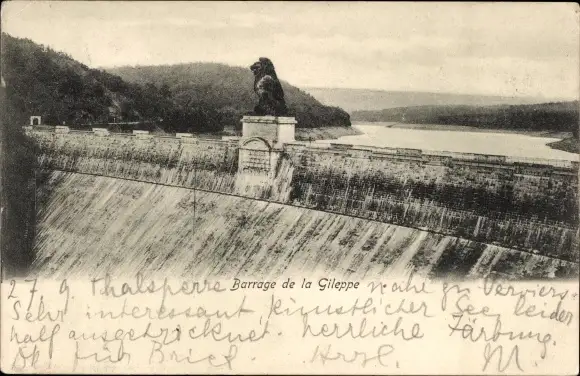 Barrage de la Gileppe
27/9 Thalsperre nahe zu Verviers.
Sehr interessant, künstlicher See, leider
halb ausgetrocknet. herrliche Färbung.
für Brief. Herzl. M.